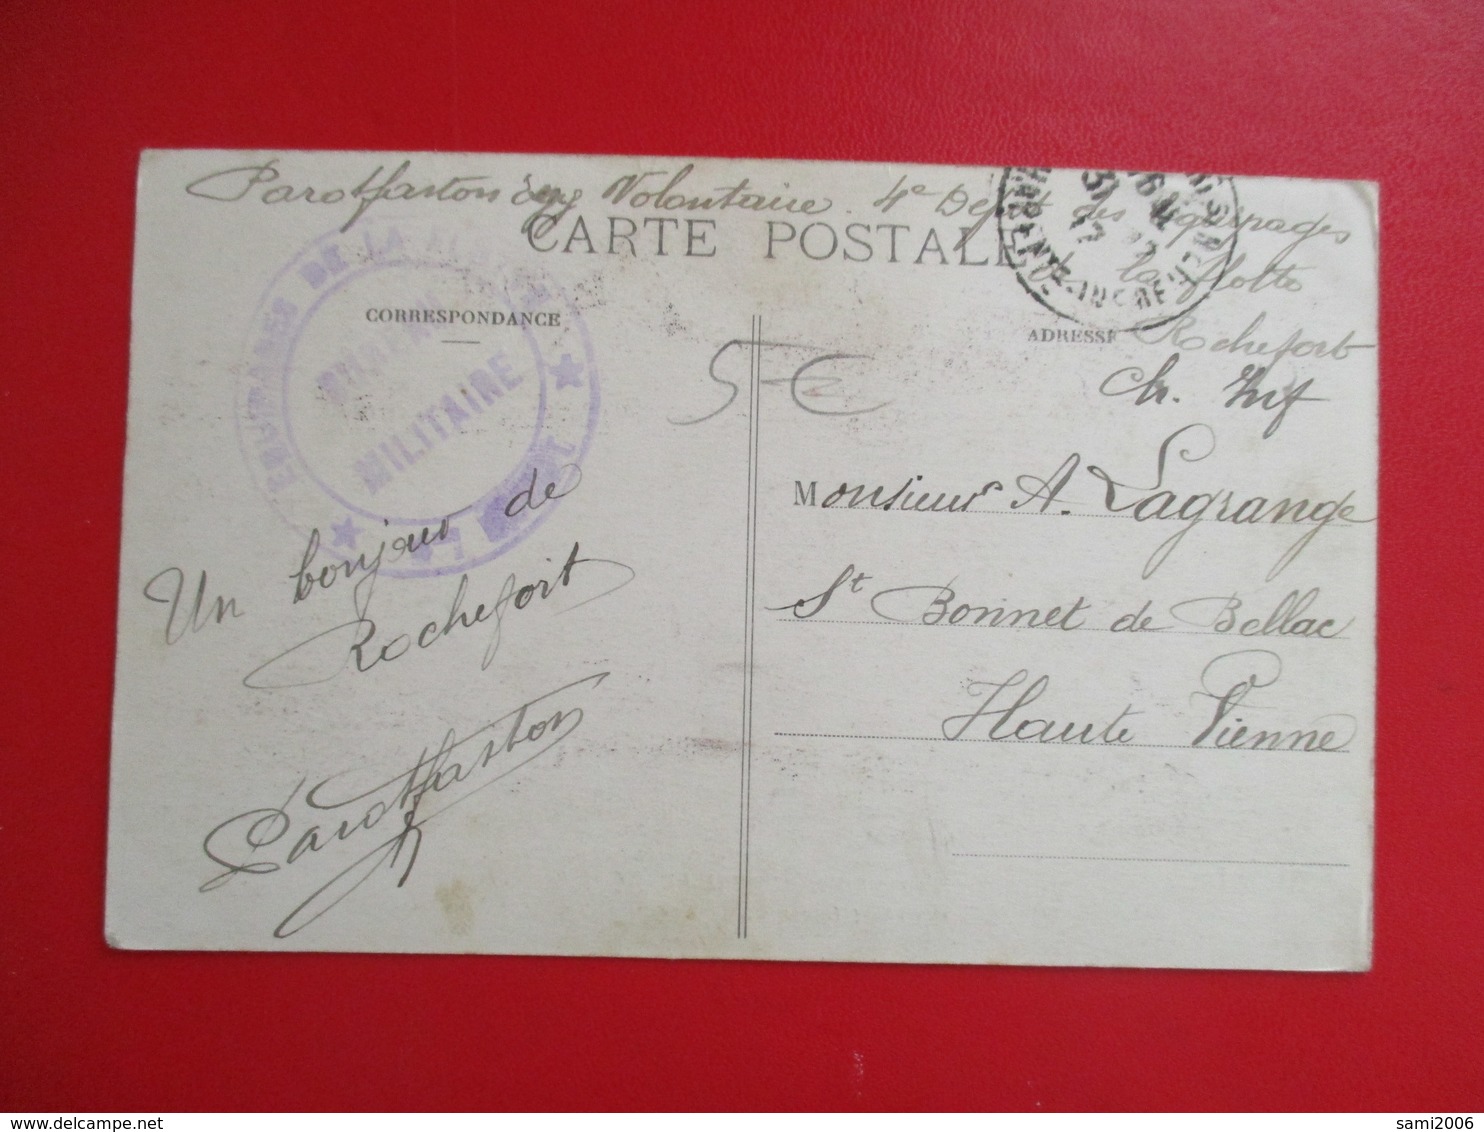 Parot Gaston eng Volontaire. 4e Depot des Equipages
de la flotte
Rochefort
Ch. Inf
CARTE POSTALE
CORRESPONDANCE
ADRESSE
EQUIPAGES DE LA
MILITAIRE
5 €
Un bonjour de
Rochefort
Parot Gaston
Monsieur A. Lagrange
St Bonnet de Bellac
Haute Vienne
sami2006